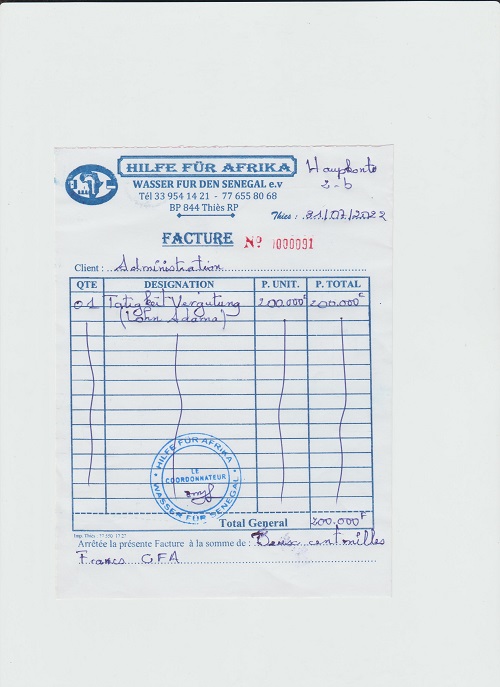 HILFE FÜR AFRIKA
Haupkonto
2-b
WASSER FUR DEN SENEGAL e.v
Tél 33 954 14 21 - 77 655 80 68
BP 844 Thiès RP
Thies : 21/07/2022
FACTURE Nº 0000091
Client : Administration
QTE DESIGNATION P. UNIT. P. TOTAL
01 Tätigkeit Vergütung 200.000F 200.000F
(Lohn Adama)
HILFE FÜR AFRIKA
LE
COORDONNATEUR
WASSER FÜR SENEGAL
Total General 200.000F
Imp. Thiès
Arrêtée la présente Facture à la somme de : Deux cent milles
Francs CFA